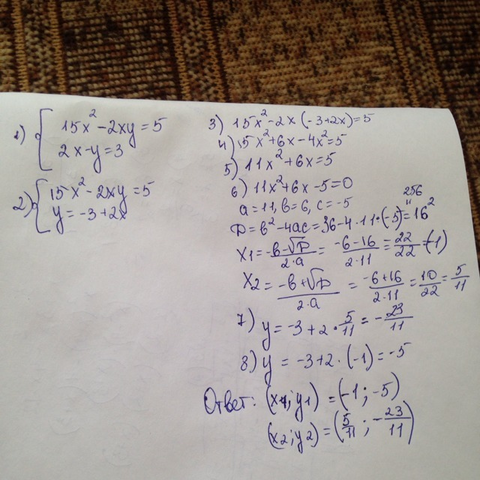 1) { 15x² - 2xy = 5
2x - y = 3
2) { 15x² - 2xy = 5
y = -3 + 2x
3) 15x² - 2x(-3+2x) = 5
4) 15x² + 6x - 4x² = 5
5) 11x² + 6x = 5
6) 11x² + 6x - 5 = 0
a = 11, b = 6, c = -5
256
D = b² - 4ac = 36 - 4·11·(-5) = 16²
x1 = -b-√D / 2·a = -6-16 / 2·11 = 22/22 = (-1)
x2 = -b+√D / 2·a = -6+16 / 2·11 = 10/22 = 5/11
7) y = -3 + 2·5/11 = -23/11
8) y = -3 + 2·(-1) = -5
Ответ: (x1; y1) = (-1; -5)
(x2; y2) = (5/11; -23/11)